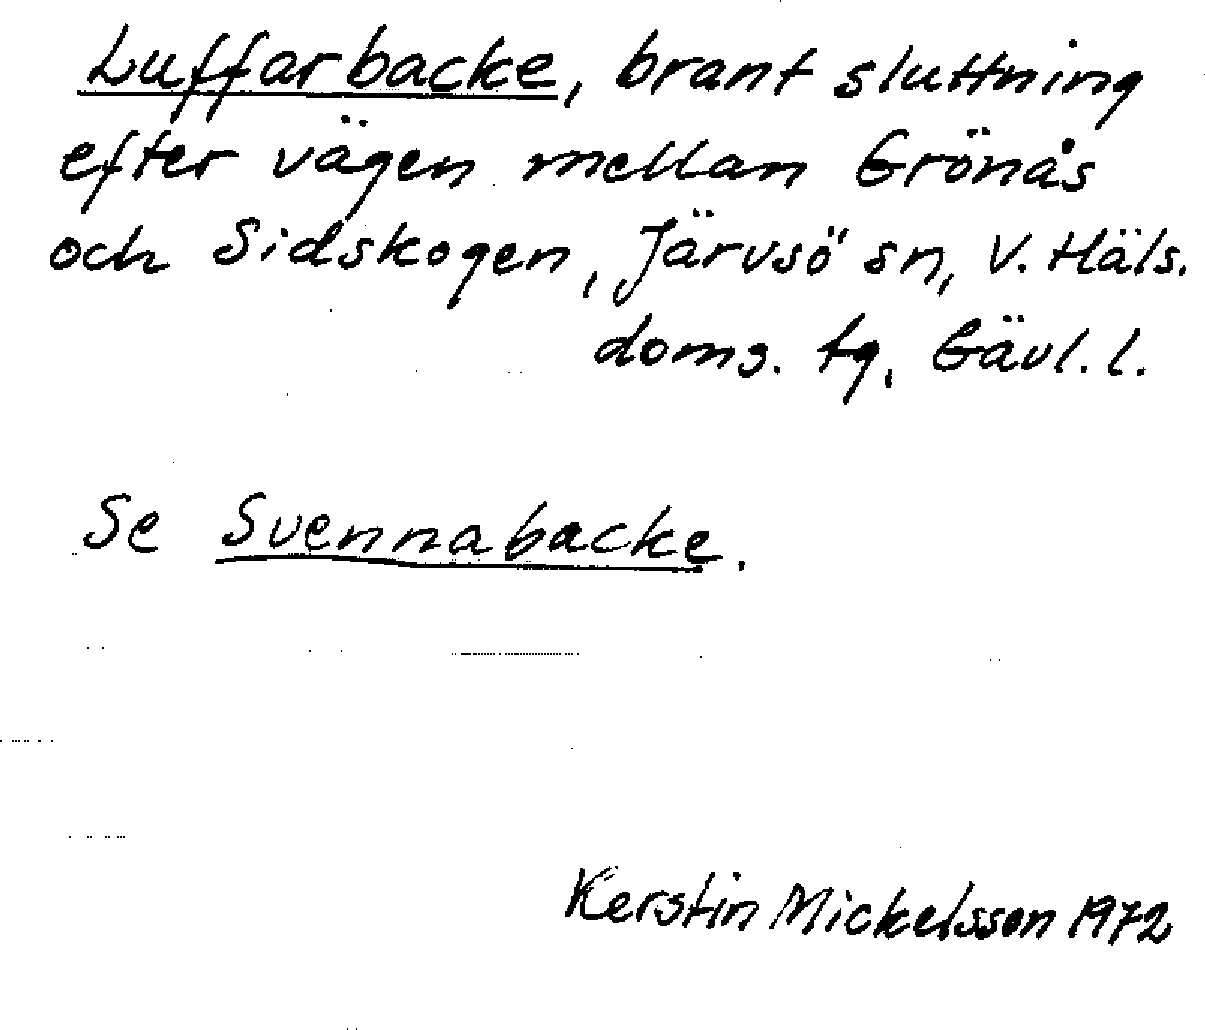 Luffarbacke, brant sluttning
efter vägen mellan Grönås
och Sidskogen, Järvsö sn, V. Häls.
doms. tg, Gävl. l.
Se Svennabacke.
Kerstin Mickelsson 1972